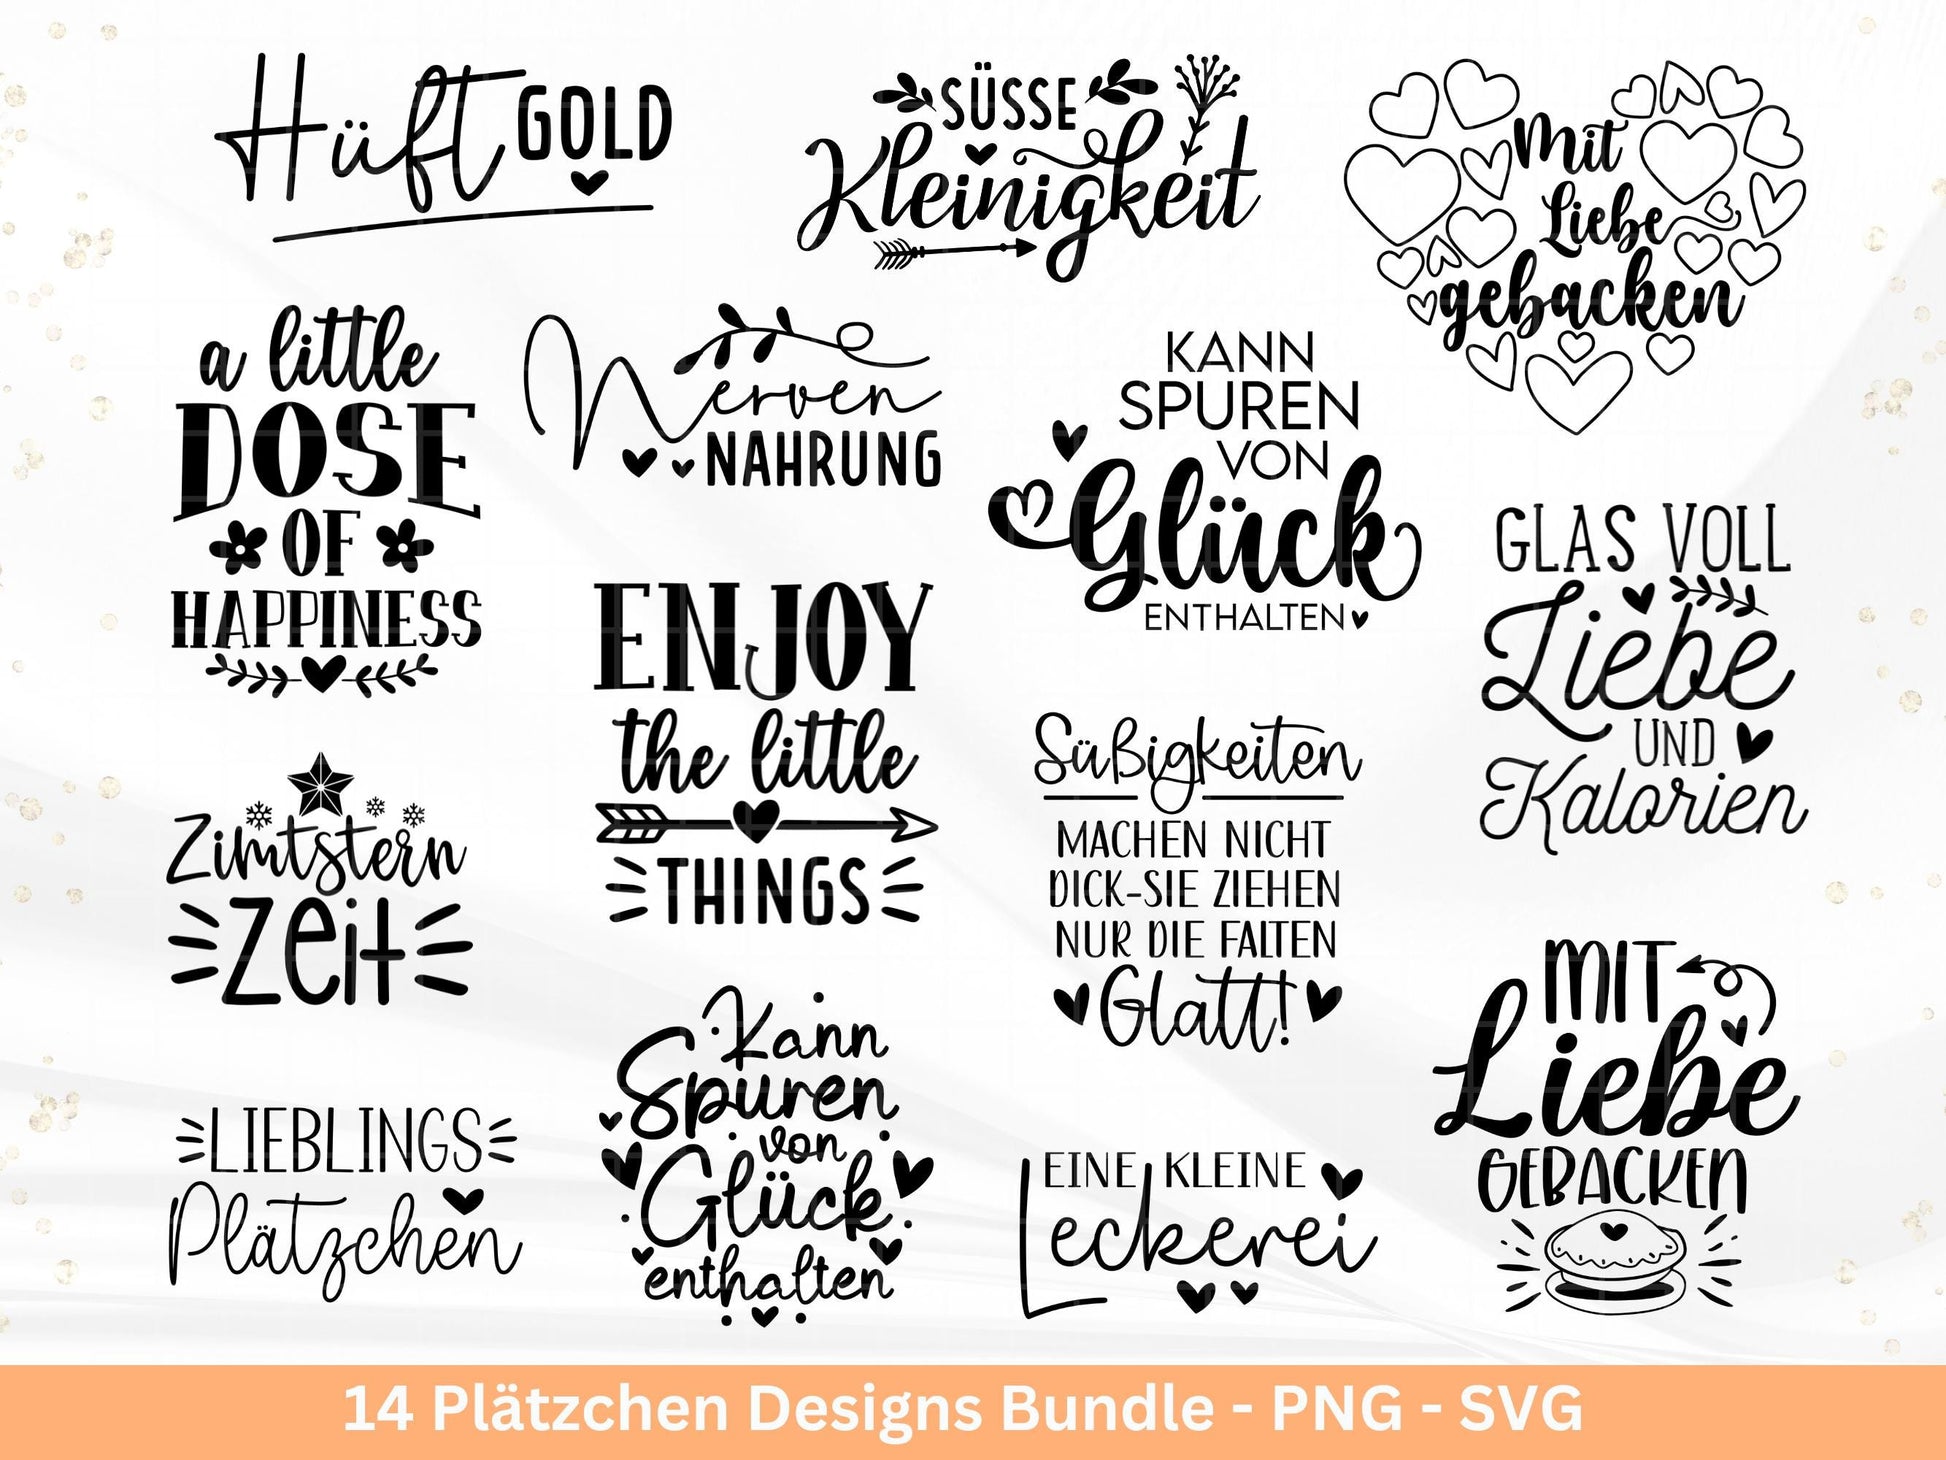 Hüft GOLD
SÜSSE
Kleinigkeit
Mit
Liebe
gebacken
a little
DOSE
OF
HAPPINESS
Nerven
NAHRUNG
KANN
SPUREN
VON
Glück
ENTHALTEN
GLAS VOLL
Liebe
UND
Kalorien
ENJOY
the little
THINGS
Zimtstern
Zeit
Süßigkeiten
MACHEN NICHT
DICK-SIE ZIEHEN
NUR DIE FALTEN
Glatt!
MIT
Liebe
GEBACKEN
LIEBLINGS
Plätzchen
Kann
Spuren
von
Glück
enthalten
EINE KLEINE
Leckerei
14 Plätzchen Designs Bundle - PNG - SVG